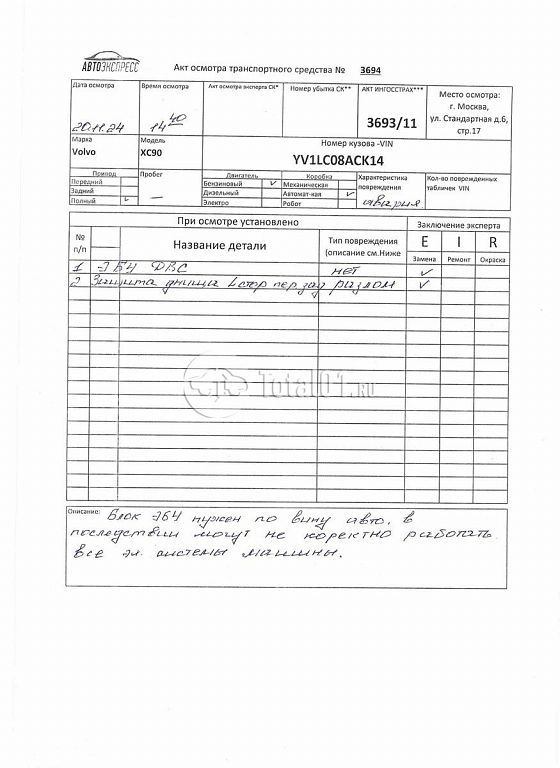 АВТОЭКСПРЕСС
Акт осмотра транспортного средства № 3694
Дата осмотра Время осмотра Акт осмотра эксперта СК* Номер убытка СК** АКТ ИНГОССТРАХ*** Место осмотра:
г. Москва,
20.11.24 14 40 3693/11 ул. Стандартная д.6,
стр.17
Марка Модель Номер кузова -VIN
Volvo XC90 YV1LC08ACK14
Привод Пробег Двигатель Коробка Характеристика Кол-во поврежденных
Передний Бензиновый ✓ Механическая повреждения табличек VIN
Задний Дизельный Автомат-ная ✓ авария
Полный ✓ — Электро Робот
При осмотре установлено Заключение эксперта
№ Название детали Тип повреждения E I R
п/п (описание см.Ниже Замена Ремонт Окраска
1 ЭБУ ДВС нет ✓
2 Защита днища L стор пер зад разлом ✓
Total01.ru
Описание: Блок ЭБУ нужен по вину авто, в
последствии могут не коректно работать
все эл. системы машины.